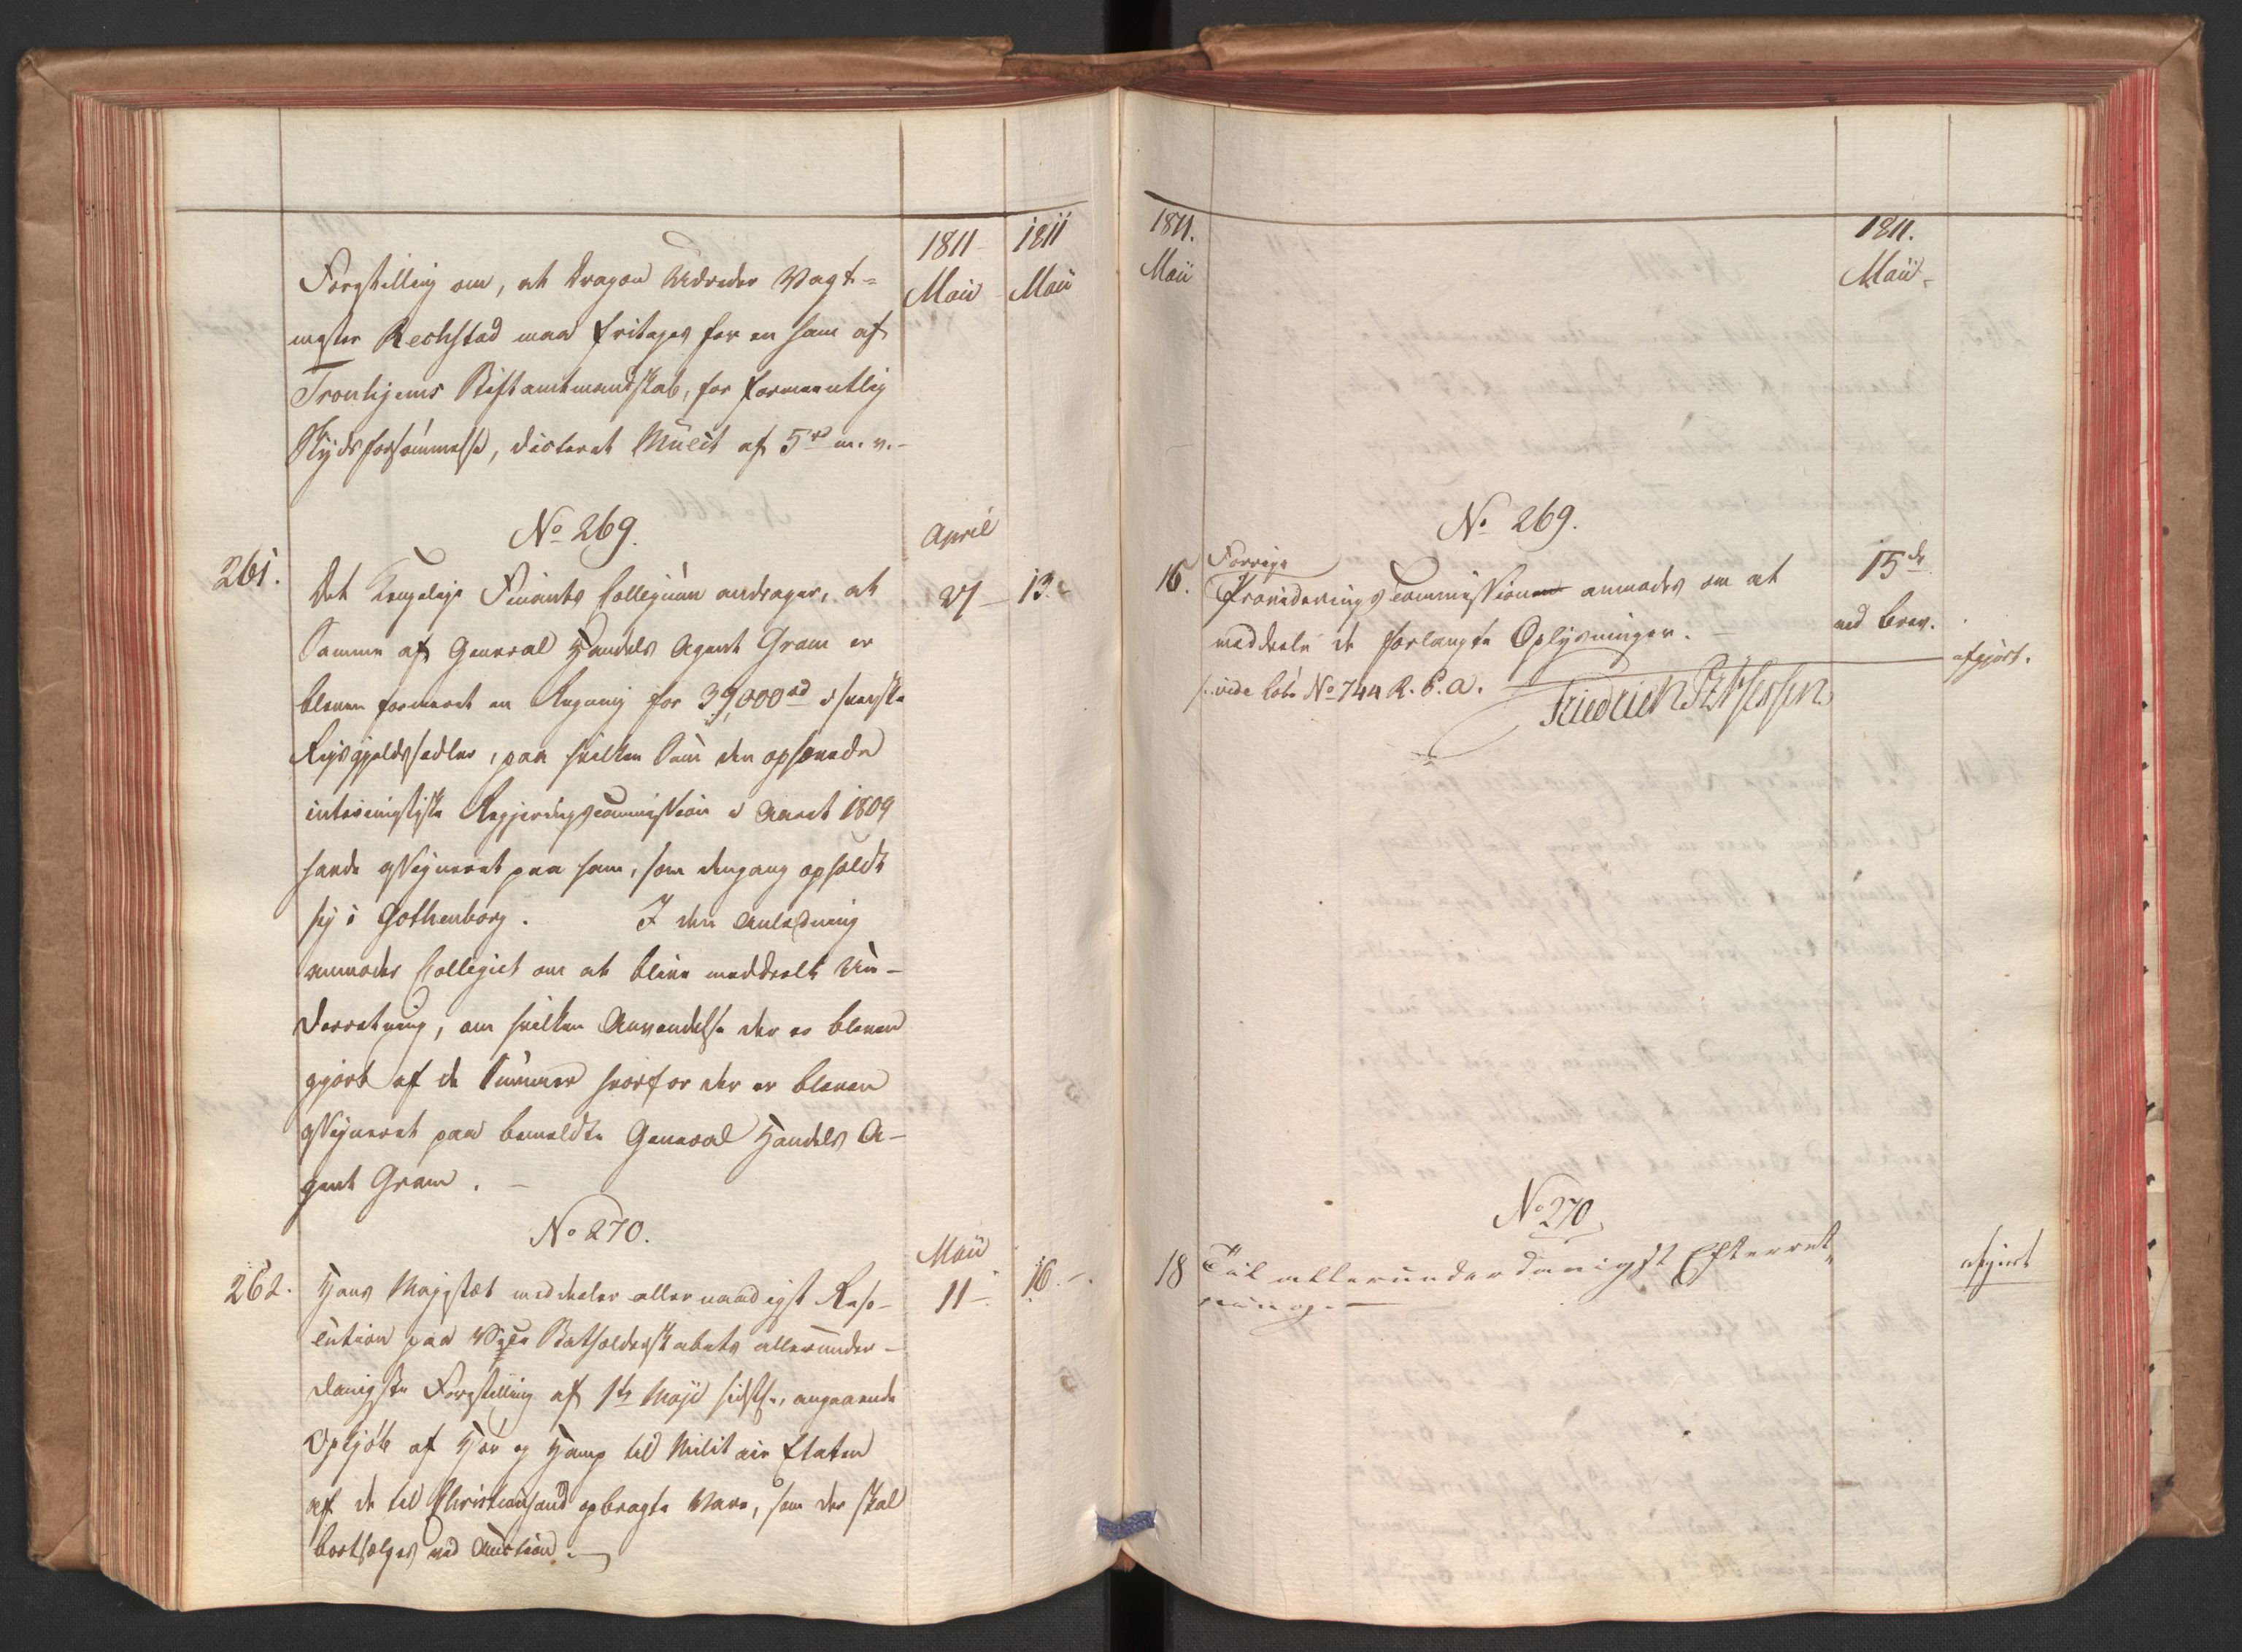 1811
Maii
1811
Maii
Forestilling om, at Dragon Udreder Vagt=
mester Rechstad maa fritages for en ham af
Tronhjems Stiftamtmandskab, for formeentlig
Skydsforsømmelse, dicteret Mulct af 5 rd m. v. –
No 269.
April
261.
27 –
13. –
Det Kongelige Finants Collegium andrager, at
Samme af General Handels Agent Gram er
bleven formeret en Regning for 39,000 rd svenske
Rigsgjeldssedler, paa hvilken Sum den ophævede
interimistiske Regjeringscommission i Aaret 1809
havde assigneret paa ham, som dengang opholdt
sig i Gothenborg. I den Anledning
anmoder Collegiet om at blive meddeelt Un-
derretning, om hvilken Anvendelse der er bleven
gjort af de Summer hvorfor der er bleven
assigneret paa bemeldte General Handels A-
gent Gram. –
No 270.
Maii
262.
11 –
16. –
Hans Majestæt meddeler allernaadigst Reso-
lution paa Vice Statholderskabets allerunder-
danigste Forestilling af 1te Maji sidstl., angaaende
Opkjøb af Hør og Hamp til Militair Etaten
af de til Christiansand opbragte Vare, som der skal
bortsælges ved Auction. –
1811.
Maii
1811.
Maii
No 269.
16.
Forrige
Provideringscommission anmodes om at
meddeele de forlangte Oplysninger. –
vide Cob: No 744 R. P. a.
15de
ved Brev.
afgjort.
Friedrich PzHessen
No 270
18
Til allerunderdanigst Efterret„
ning. –
afgiort